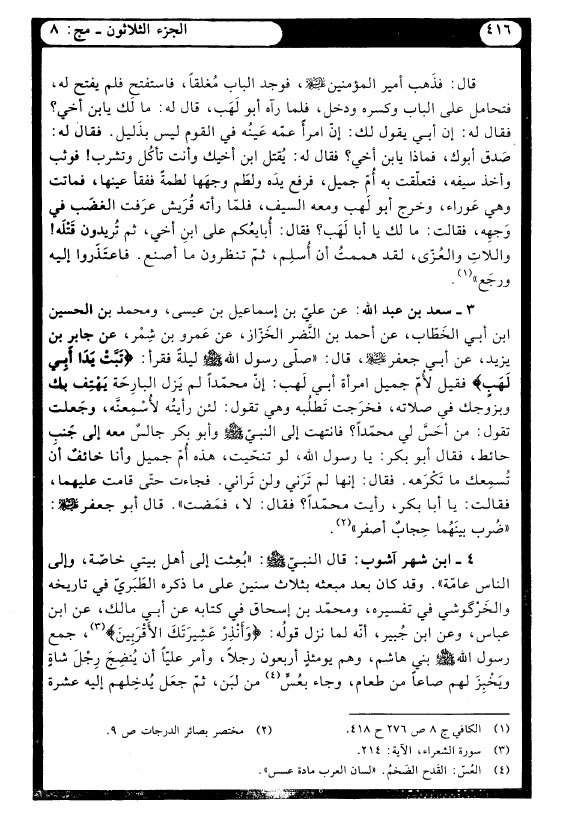 ٤١٦
الجزء الثلاثون ـ مج: ٨
قال: فذَهب أمير المؤمنين ﷺ، فوجد الباب مُغلقاً، فاستفتح فلم يفتح له،
فتحامل على الباب وكسره ودخل، فلما رآه أبو لَهَب، قال له: ما لَك يابن أخي؟
فقال له: إن أبي يقول لك: إنّ امرأً عمّه عَينُه في القوم ليس بذَليل. فقال له:
صَدق أبوك، فماذا يابن أخي؟ فقال له: يُقتل ابن أخيك وأنت تأكُل وتشرب! فوثب
وأخذ سيفه، فتعلّقت به أُمّ جميل، فرفع يدَه ولطَم وجهَها لطمةً ففقأ عينها، فماتت
وهي عَوراء، وخرج أبو لهب ومعه السيف، فلمّا رأته قُريش عرَفت الغضَب في
وَجهِه، فقالت: ما لك يا أبا لَهَب؟ فقال: أُبايعُكم على ابنِ أخي، ثم تُريدون قَتْله!
واللاتِ والعُزّى، لقد هممتُ أن أُسلِم، ثمّ تنظرون ما أصنع. فاعتَذَروا إليه
ورجَع»(١).
٣ ـ سعد بن عبد الله: عن عليّ بن إسماعيل بن عيسى، ومحمد بن الحسين
ابن أبي الخطّاب، عن أحمد بن النَّضر الخزّاز، عن عمرو بن شِمْر، عن جابر بن
يزيد، عن أبي جعفر ﷺ، قال: «صلّى رسول الله ﷺ ليلةً فقرأ: ﴿تَبَّتْ يَدَا أَبِي
لَهَبٍ﴾ فقيل لأُمّ جميل امرأة أبي لهب: إنّ محمّداً لم يَزل البارِحَة يَهْتِف بك
وبزوجك في صلاته، فخرَجت تَطلُبه وهي تقول: لئن رأيتُه لأُسْمِعنَّه، وجَعلت
تقول: من أحَسَّ لي محمّداً؟ فانتهت إلى النبيّ ﷺ وأبو بكر جالسٌ معه إلى جَنبِ
حائط، فقال أبو بكر: يا رسول الله، لو تنحّيت، هذه أُم جميل وأنا خائفٌ أن
تُسمِعك ما تَكْرَهه. فقال: إنها لم تَرَني ولن تَراني. فجاءت حتّى قامت عليهما،
فقالت: يا أبا بكر، رأيت محمّداً؟ فقال: لا، فمَضت». قال أبو جعفر ﷺ:
«ضُرِب بينَهُما حِجابٌ أصفر»(٢).
٤ ـ ابن شهر آشوب: قال النبيّ ﷺ: «بُعِثت إلى أهل بيتي خاصّة، وإلى
الناس عامّة». وقد كان بعد مبعثه بثلاث سنين على ما ذكره الطَبَريّ في تاريخه
والخَرْگوشي في تفسيره، ومحمد بن إسحاق في كتابه عن أبي مالك، عن ابن
عباس، وعن ابن جُبير، أنّه لما نزل قولُه: ﴿وَأَنْذِرْ عَشِيرَتَكَ الأَقْرَبِينَ﴾(٣)، جمع
رسول الله ﷺ بني هاشم، وهم يومئذٍ أربعون رجلاً، وأمر عليّاً أن يُنضِجَ رِجْلَ شاةٍ
ويَخْبِزَ لهم صاعاً من طعام، وجاء بعُسٍّ(٤) من لبَن، ثمّ جعَل يُدخِلهم إليه عشرة
(١) الكافي ج ٨ ص ٢٧٦ ح ٤١٨.
(٢) مختصر بصائر الدرجات ص ٩.
(٣) سورة الشعراء، الآية: ٢١٤.
(٤) العُسّ: القدح الضَخمُ. «لسان العرب مادة عسس».